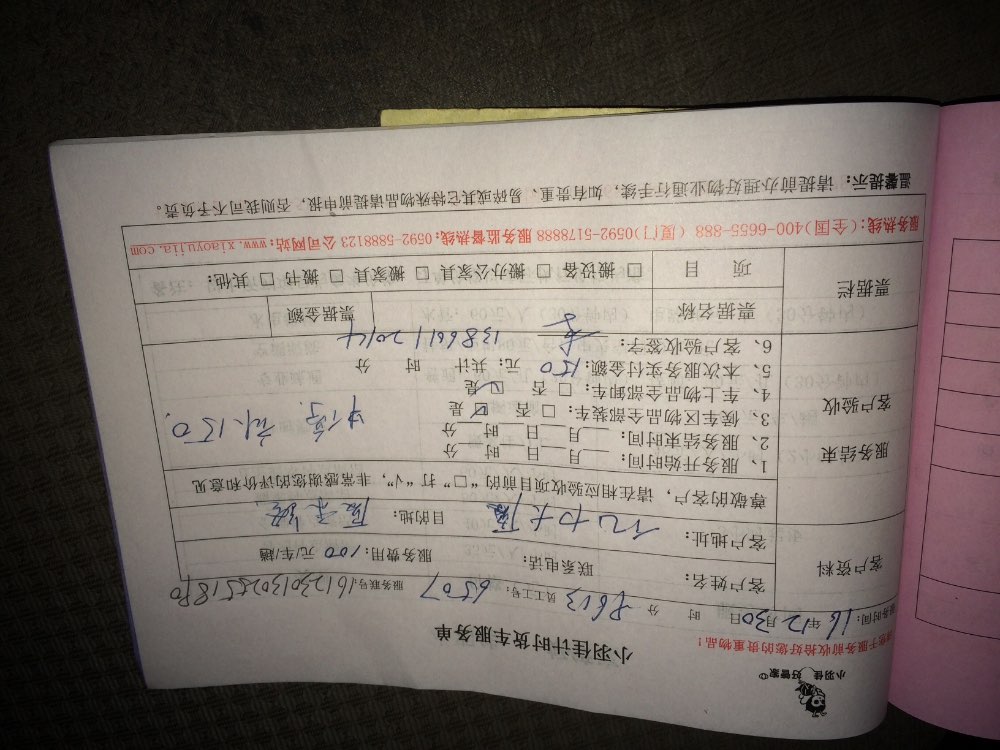 小羽佳 好管家
小羽佳计时货车服务单
请您于服务前收拾好您的贵重物品!
服务时间: 16 年 12 月 30 日 时 分 员工工号: 6507 服务联号: 161230130255180
客户资料 客户姓名: 联系电话: 服务费用: 100 元/车/趟
客户地址: 目的地:
尊敬的客户, 请在相应验收项目前的“□”打“√”, 非常感谢您的评价和意见
服务结束
客户验收
1、服务开始时间: 月 日 时 分
2、服务结束时间: 月 日 时 分
3、候车区物品全部装: □ 否 ☑ 是
4、车上物品全部卸车: □ 否 ☑ 是
5、本次服务实付金额: 150 元; 共计 时 分
6、客户验收签字: 13860112014
票据栏 票据名称 票据金额
项 目 □ 搬设备 □ 搬办公家具 □ 搬家具 □ 搬书 □ 其他:
服务热线: (全国)400-6655-888 (厦门)0592-5178888 服务监督热线: 0592-5888123 公司网站: www.xiaoyujia.com
温馨提示: 请提前办理好物业通行手续, 如有贵重、易碎或其它特殊物品请提前申报, 否则我司不予负责。